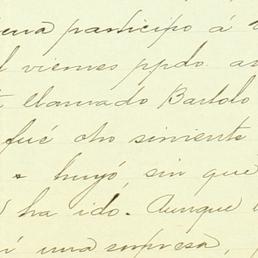 participo á
viernes ppdo. a
llamado Bartolo
fué otro sirviente
huyó, sin que
ha ido. Aunque
una sorpresa,